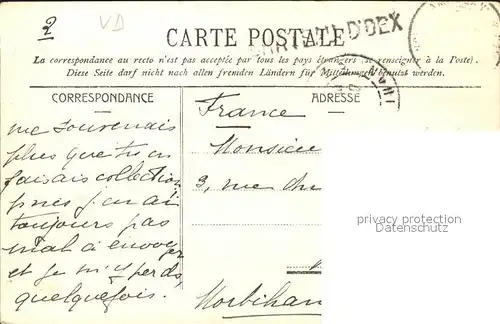 2
VD
CARTE POSTALE
D'OEX
La correspondance au recto n'est pas acceptée par tous les pays étrangers (se renseigner à la Poste).
Diese Seite darf nicht nach allen fremden Ländern für Mitteilungen benutzt werden.
CORRESPONDANCE
ADRESSE
France
Monsieur
3, rue du
Morbihan
me souvenais
plus que tu en
faisais collection
puis j'en ai
toujours pas
mal à envoyer
et je m'y perds
quelquefois.
privacy protection
Datenschutz